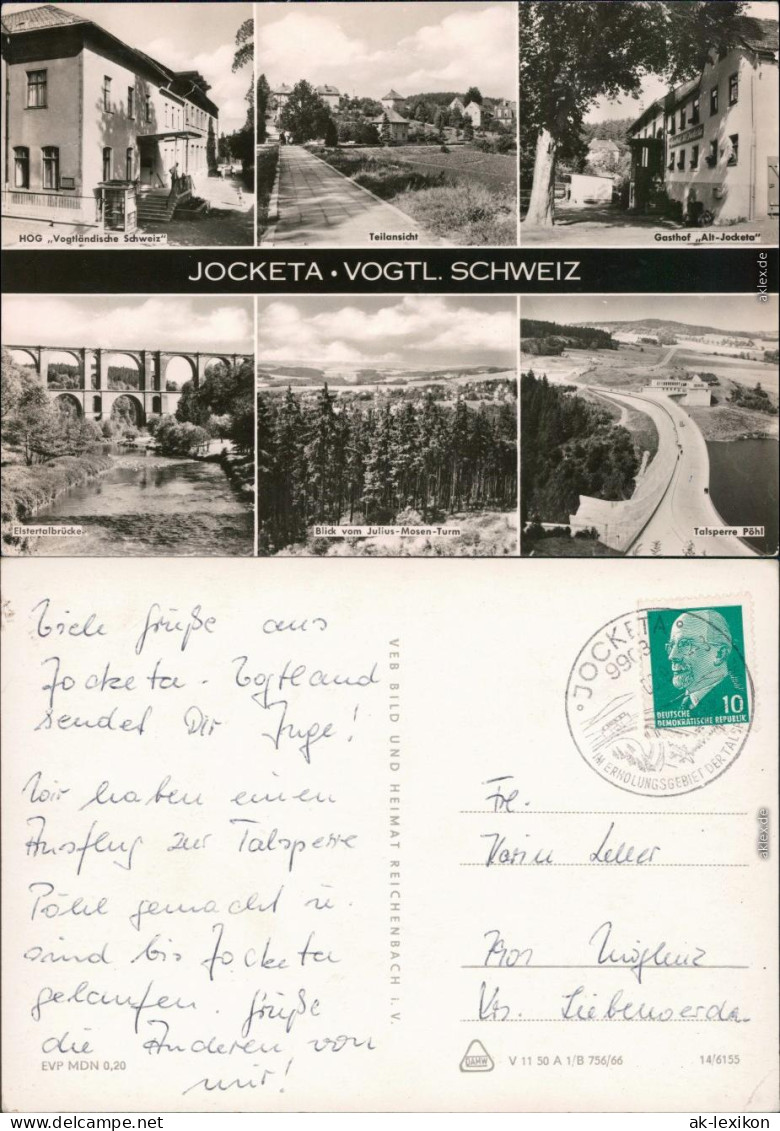 HOG „Vogtländische Schweiz"
Teilansicht
Gasthof „Alt-Jocketa"
JOCKETA • VOGTL. SCHWEIZ
Elstertalbrücke
Blick vom Julius-Mosen-Turm
Talsperre Pöhl
aklex.de
Viele Grüße aus
Jocketa - Vogtland
sendet Dir Inge!
Wir haben einen
Ausflug zur Talsperre
Pöhl gemacht u.
sind bis Jocketa
gelaufen. Grüße
die Anderen von
mir!
EVP MDN 0,20
VEB BILD UND HEIMAT REICHENBACH i. V.
JOCKETA
9903
IM ERHOLUNGSGEBIET DER TALSP
10
DEUTSCHE
DEMOKRATISCHE REPUBLIK
Frl.
Karin
7901
Krs. Liebenwerda
aklex.de
DAMW
V 11 50 A 1/B 756/66
14/6155
www.ak-lexikon.de
ak-lexikon